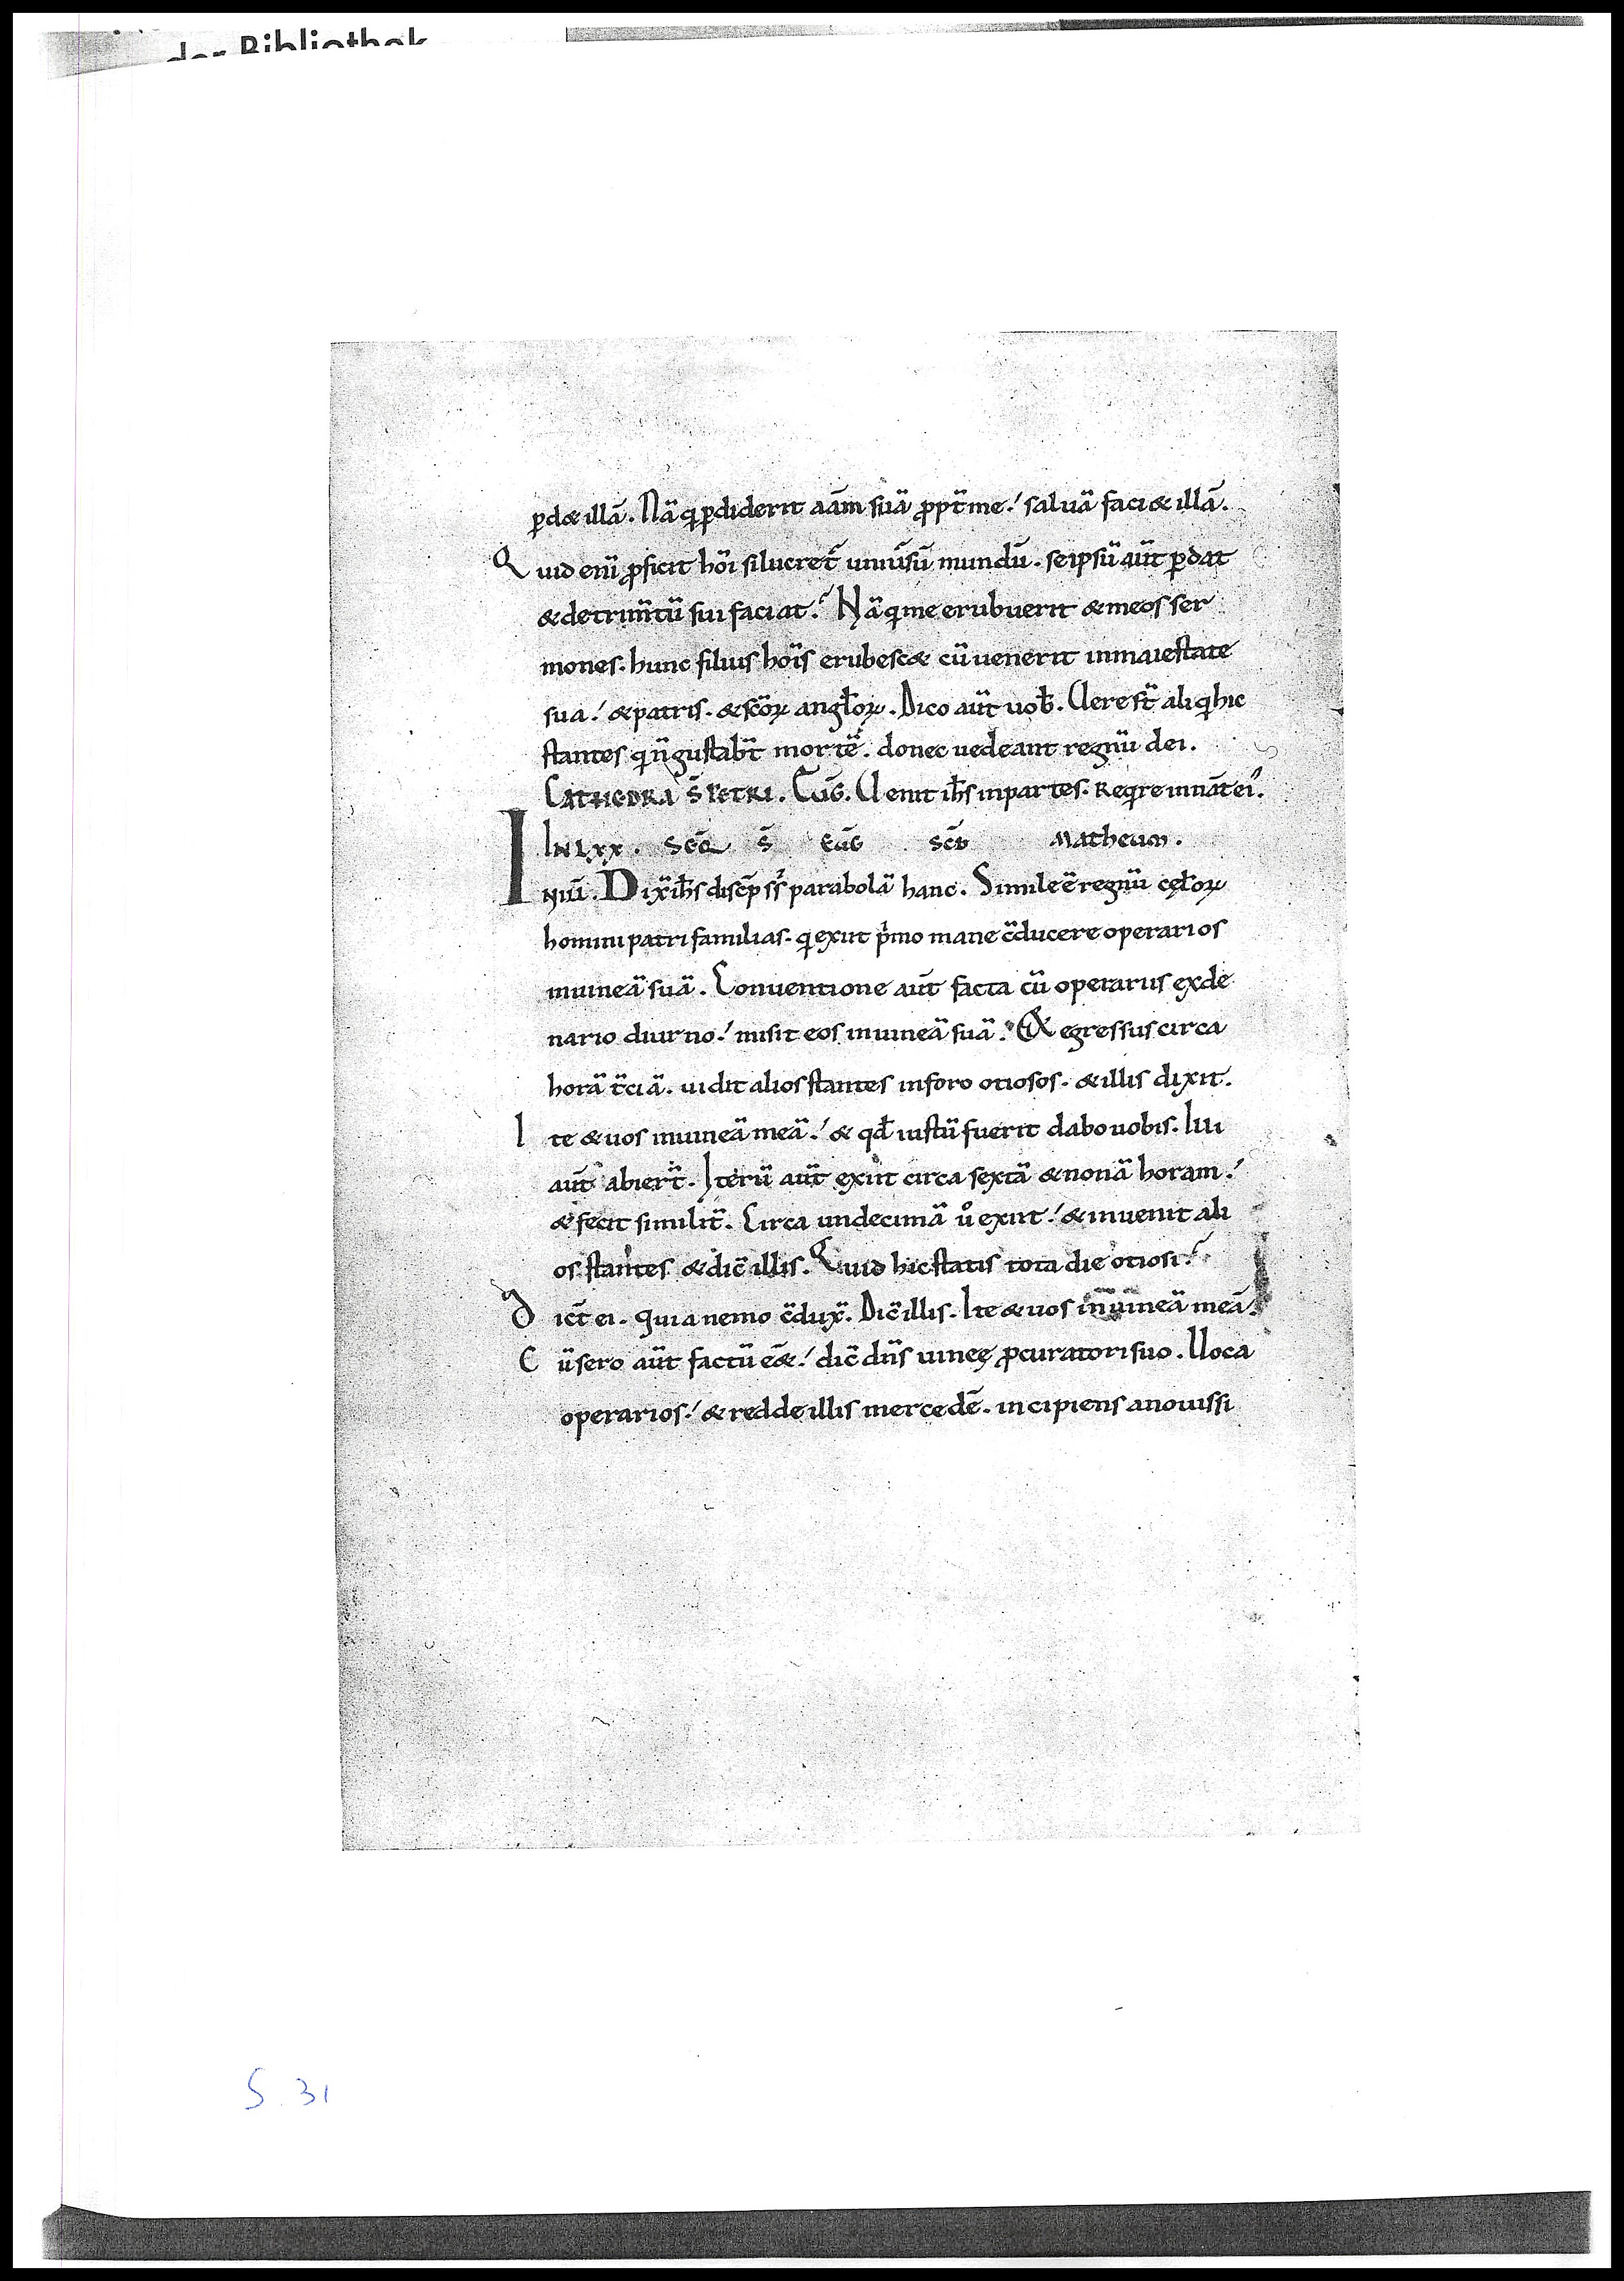 der Bibliothek
ꝑd&illā. Nā q ꝑdiderit aām suā ꝓpt̄ me.' saluā faci&illā.
Quid enī ꝓficit hōi si lucret̄ uniūsū mundū. seipsū aūt ꝑdat
&detrim̄tū sui faciat. Nā q me erubuerit &meos ser
mones. hunc filius hōis erubesc& cū uenerit inmaiestate
sua.' &patris. &sc̄oꝝ angl̄oꝝ. Dico aūt uob̄. Uere st̄ aliq hic
stantes q n̄ gustab̄t mortē. donec uedeant regnū dei.
CATHEDRA S̄ PETRI. EUḠ. Uenit ih̄s inpartes. Reqre innāt ei'.
IN LXX. SEQ̄ S̄ EUḠ SC̄D Matheum.
IN iłł. Dix̄ ih̄s discip̄ s̄s parabolā hanc. Simile ē regnū cęl̄oꝝ
homini patri familias. q exiit p̄mo mane c̄ducere operarios
inuineā suā. Conuentione aūt facta cū operariis exde
nario diurno.' misit eos inuineā suā. Et egressus circa
horā t̄ciā. uidit alios stantes inforo otiosos. &illis dixit.
Ite &uos inuineā meā.' & qd̄ iustū fuerit dabo uobis. Illi
aūt abier̄t. Iterū aūt exiit circa sextā &nonā horam.'
&fecit similit̄. Circa undecimā ů exiit.' &inuenit ali
os stantes &dic̄ illis. Quid hic statis tota die otiosi.
Dic̄t ei. quia nemo c̄dux̄. Dic̄ illis. Ite &uos inuineā meā.
Cū sero aūt factū ē&.' dic̄ dn̄s uineę ꝓcuratori suo. Uoca
operarios.' &redde illis mercedē. incipiens anouissi
S. 31